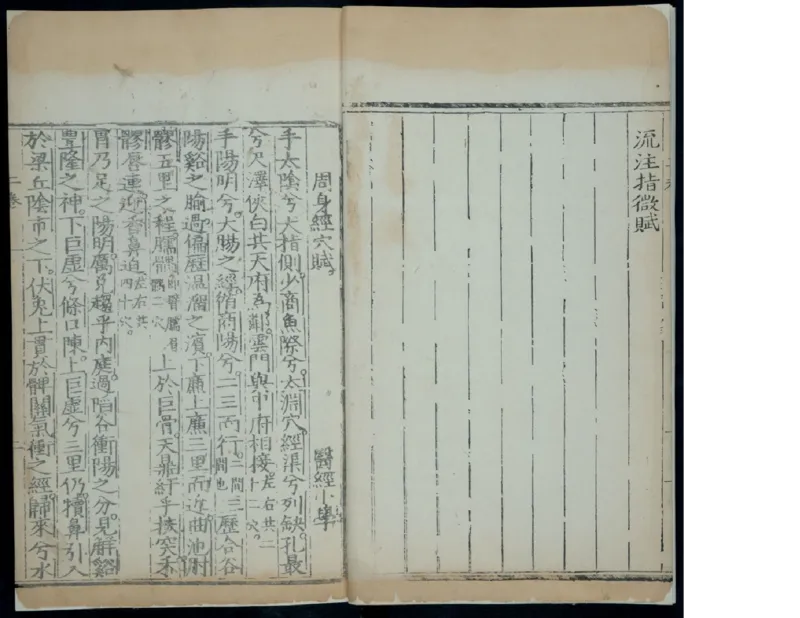 流注指微賦
周身經穴賦 醫經小學
手太陰兮大指側少商魚際兮太淵穴經渠兮列缺孔最
兮尺澤俠白共天府為鄰雲門與中府相接左右共二十二穴
手陽明兮大腸之經循商陽兮二三而行二間三間也歷合谷
陽谿之腧過偏歷溫溜之濱下廉上廉三里而近曲池肘
髎五里之程臑上於巨骨天鼎紆乎扶突禾
髎唇連迎香鼻迫左右共四十穴
胃乃足之陽明厲兌趨乎內庭過陷谷衝陽之分見解谿
豐隆之神下巨虛兮條口陳上巨虛兮三里仍犢鼻引入
於梁丘陰市之下伏兔上貫於髀關氣衝之經歸來兮水
二卷